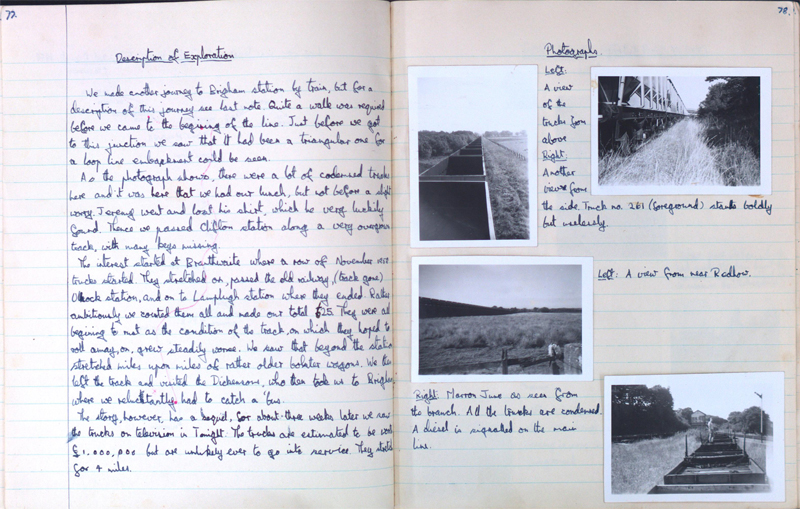 72.
Description of Exploration
We made another journey to Brigham station by train, but for a
description of this journey see last note. Quite a walk was required
before we came to the begining of the line. Just before we got
to this junction we saw that it had been a triangular one for
a loop line embankment could be seen.
As the photograph shows, there were a lot of condemned trucks
here and it was here that we had our lunch, but not before a slight
worry. Jeremy went and lost his shirt, which he very luckily
found. Thence we passed Clifton station along a very overgrown
track, with many pegs missing.
The interest started at Branthwaite where a row of November 1958
trucks started. They stretched on, passed the old railway, (track gone)
Ullock station, and on to Lamplugh station where they ended. Rather
ambitiously we counted them all and made our total 525. They were all
begining to rust as the condition of the track, on which they hoped to
roll away, on, grew steadily worse. We saw that beyond the station
stretched miles upon miles of rather older bolster wagons. We then
left the track and visited the Dickensons, who then took us to Brigham
where we reluctantly had to catch a 'bus.
The story, however, has a sequel, for about three weeks later we saw
the trucks on television in Tonight. The trucks are estimated to be worth
£1,000,000 but are unlikely ever to go into service. They stretch
for 4 miles.
73.
Photographs
Left:
A view
of the
trucks from
above
Right:
Another
view from
the side. Truck no. 261 (foreground) stands boldly
but uselessly.
Left: A view from near Redlow.
Right: Marron Junc. as seen from
the branch. All the trucks are condemned.
A diesel is signalled on the main
line.